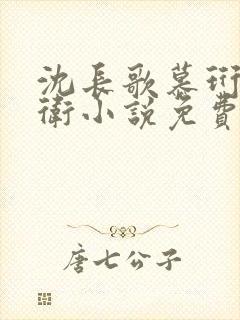 沈長歌慕珩
衛小說免費
唐七公子